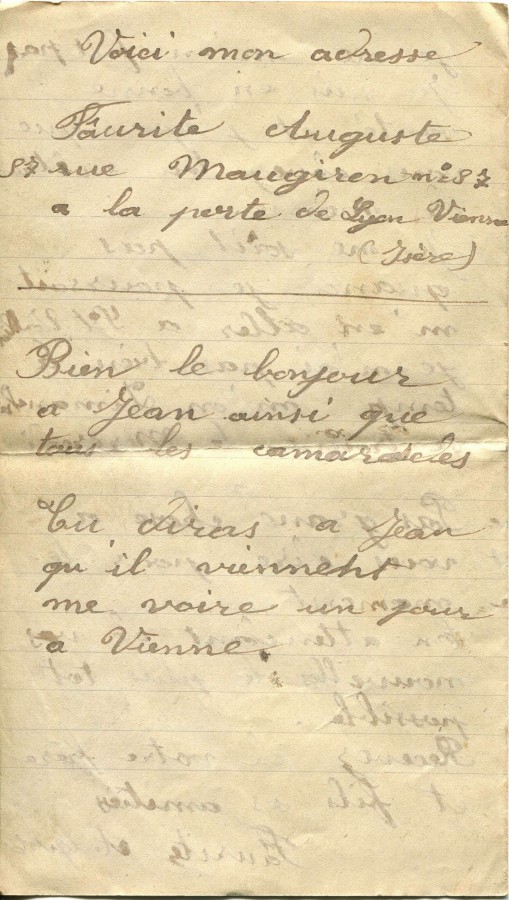 Voici mon adresse
Faurite Auguste
87 rue Maugiren nº 87
a la porte de Lyon Vienne
(Isère)
Bien le bonjour
a Jean ainsi que
tous les camarades
Tu diras a Jean
qu'il viennent
me voire un jour
a Vienne.